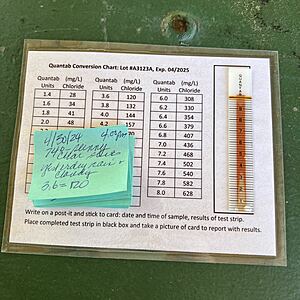 Quantab Conversion Chart: Lot #A3123A, Exp. 04/2025
Quantab (mg/L) Quantab (mg/L) Quantab (mg/L)
Units Chloride Units Chloride Units Chloride
1.4 28 3.6 120 6.0 308
1.6 34 3.8 132 6.2 330
1.8 41 4.0 144 6.4 354
2.0 48 6.6 379
6.8 407
7.0 437
7.2 468
7.4 502
7.6 540
7.8 582
8.0 628
4/30/24
sunny
yesterday rain +
cloudy
3.6 = 120
Write on a post-it and stick to card: date and time of sample, results of test strip.
Place completed test strip in black box and take a picture of card to report with results.